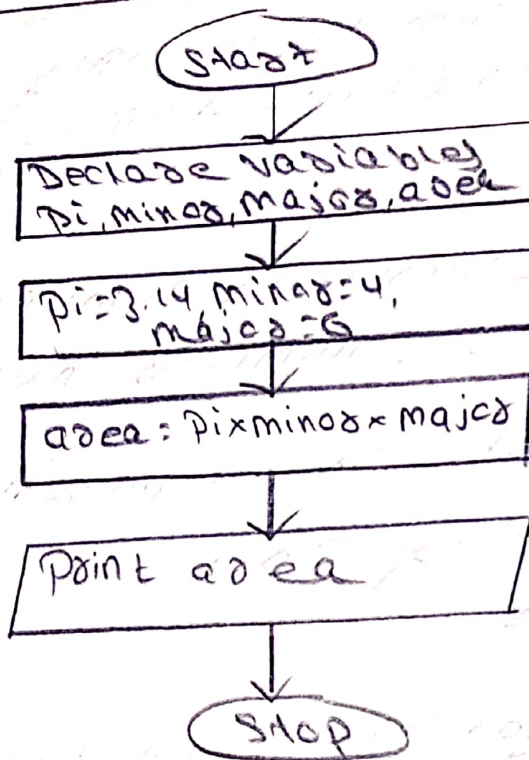 Start
Declare variables
pi, minor, major, area
pi=3.14, minor=4,
major=6
area = pi×minor×major
Print area
Stop